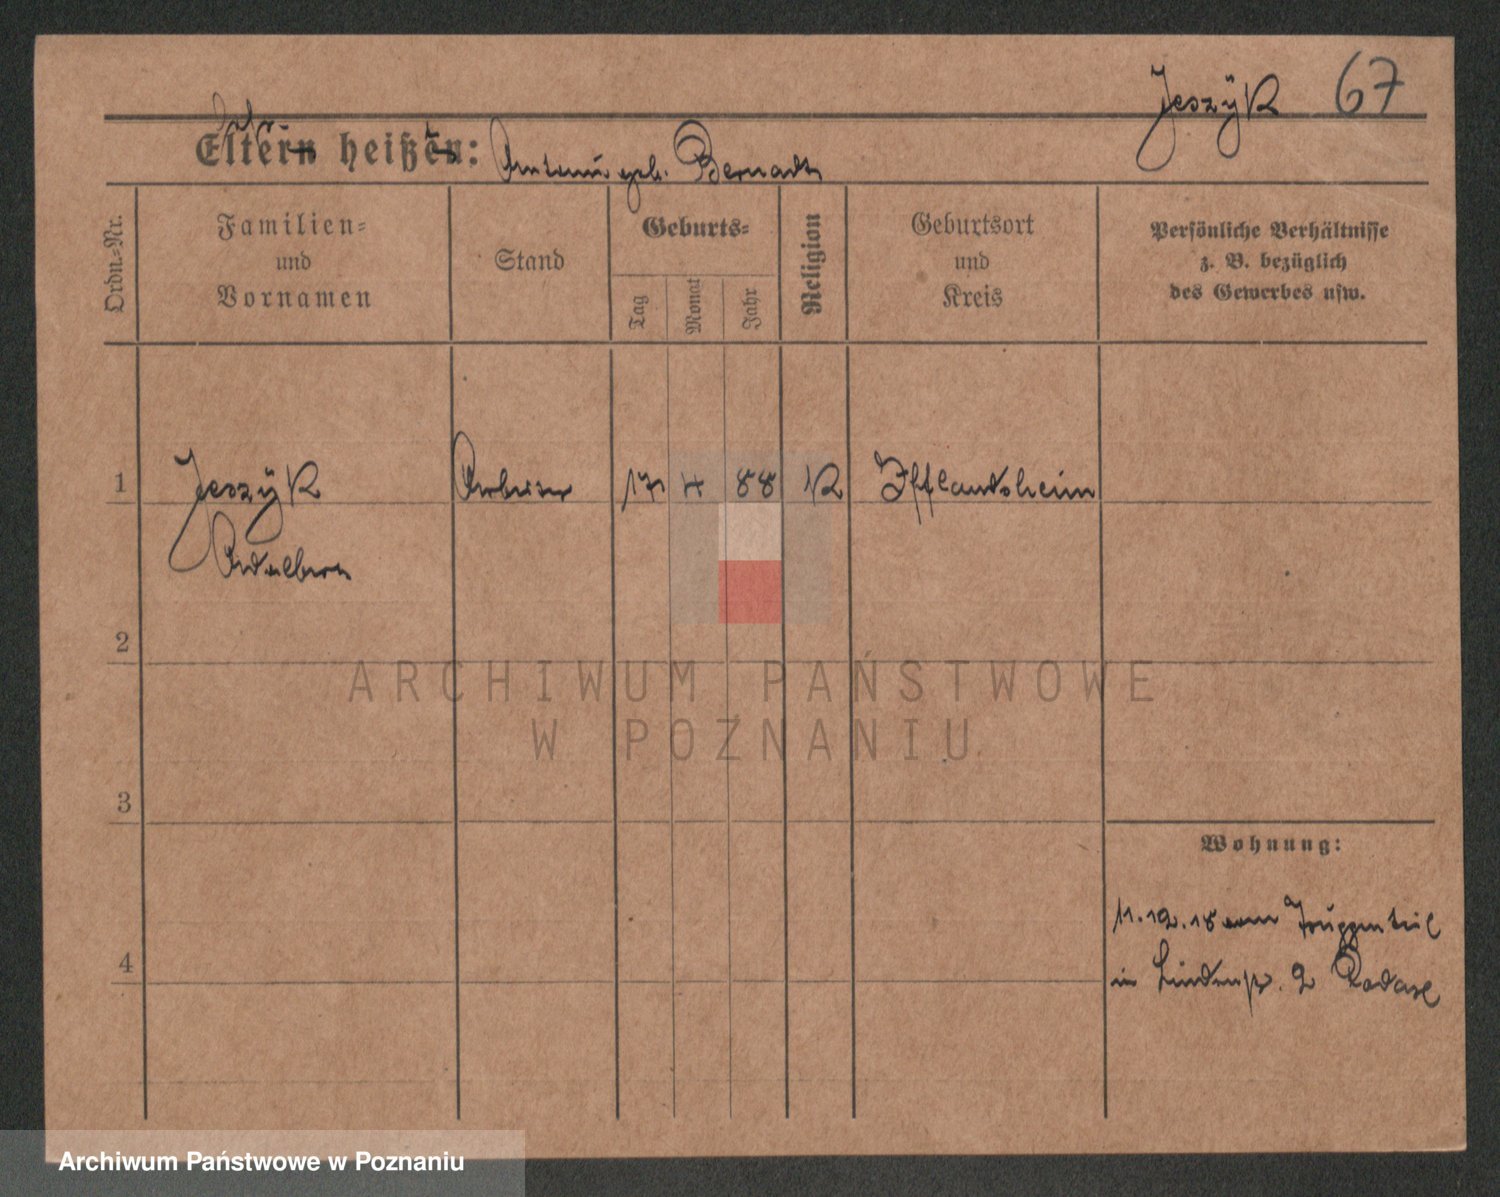 Jeszÿk 67
Eltern heißen: Antonie geb. Bernadt
Ordn.=Nr.
Familien=
und
Vornamen
Stand
Geburts=
Tag
Monat
Jahr
Religion
Geburtsort
und
Kreis
Persönliche Verhältnisse
z. B. bezüglich
des Gewerbes usw.
1 Jeszÿk Arbeiter 17 4 88 K Ifflandsheim
Adalbert
2
3
4
Wohnung:
11.12.18 vom Truppenteil
in Lindenstr. 2
ARCHIWUM PAŃSTWOWE
W POZNANIU
Archiwum Państwowe w Poznaniu